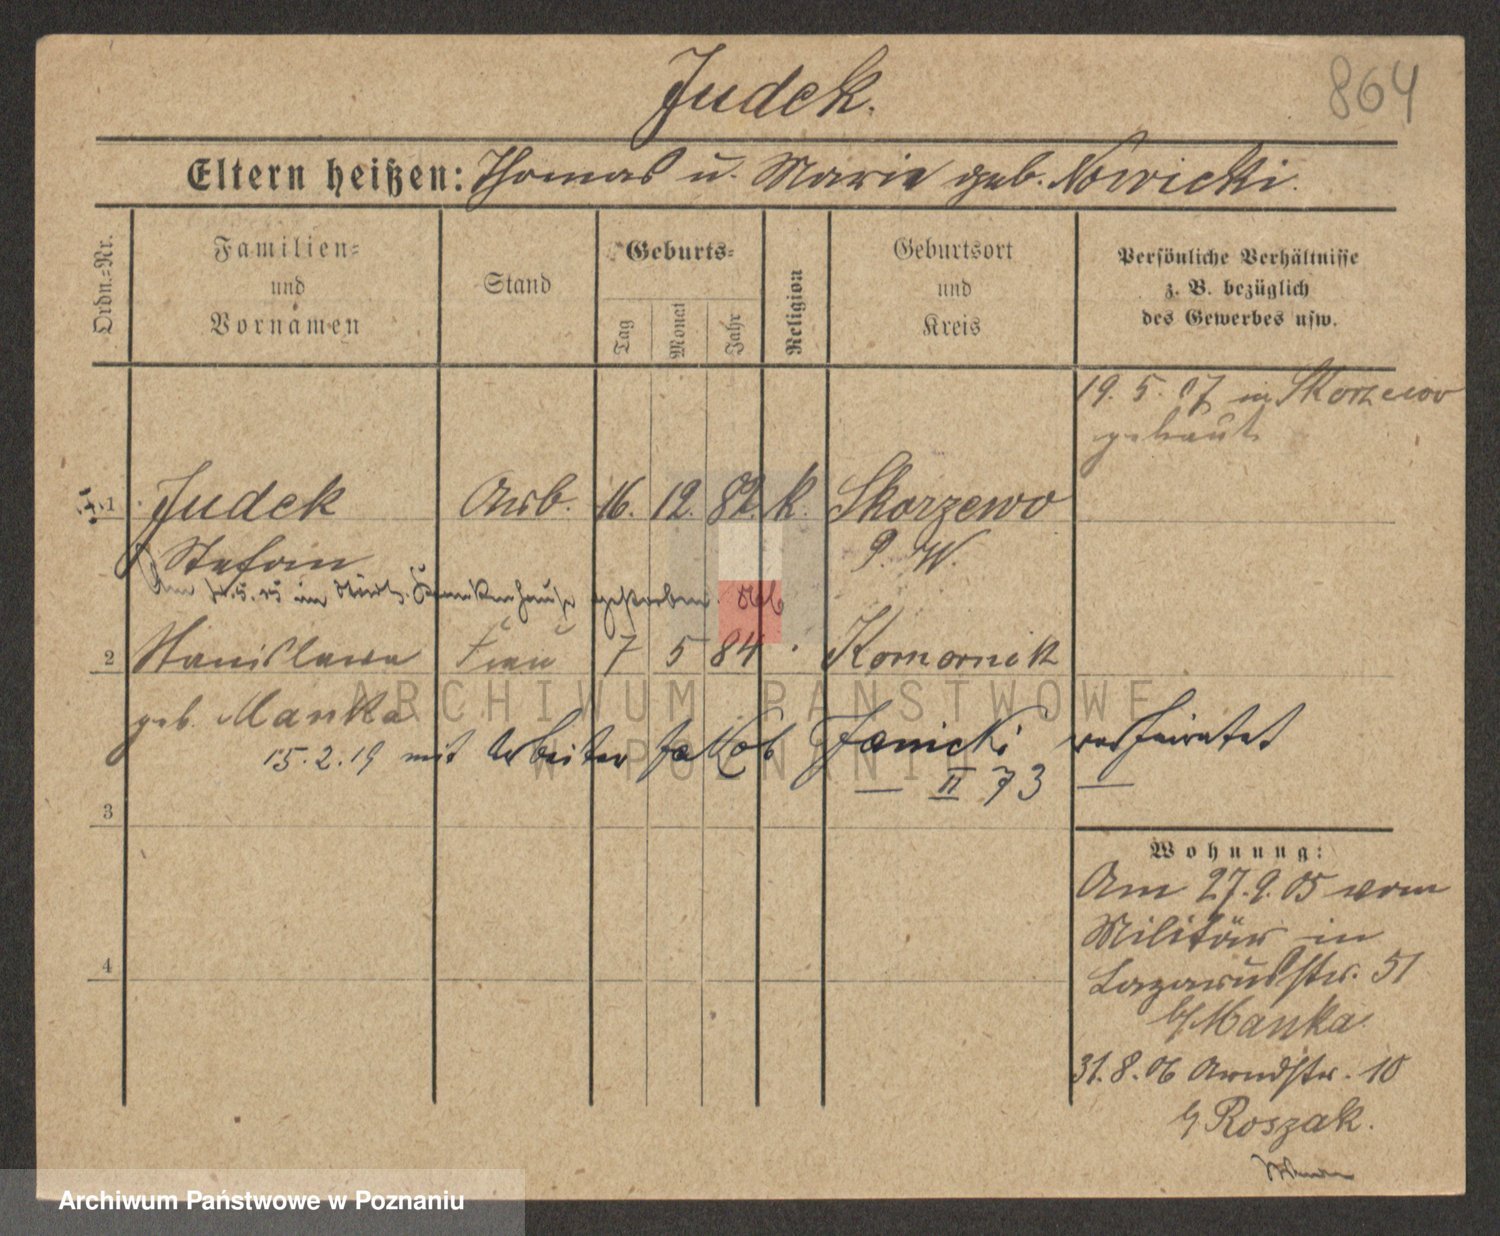 Judek.
864
Eltern heißen: Thomas u. Marie geb. Nowicki.
Ordn.-Nr.
Familien-
und
Vornamen
Stand
Geburts-
Tag
Monat
Jahr
Religion
Geburtsort
und
Kreis
Persönliche Verhältnisse
z. B. bezüglich
des Gewerbes usw.
19. 5. 07 in Skorzewo
getraut
1 Judek Arb. 16. 12. 82. k. Skorzewo
Stefan P. W.
Am im Städt. Krankenhause gestorben.
2 Stanislawa Frau 7 5 84 Komornik
geb. Manka
15. 2. 19 mit Arbeiter Jakob Janicki verheiratet
II 73
3
4
Wohnung:
Am 27. 9. 05 vom
Militär in
Lazarusstr. 51
b/ Manka
31. 8. 06 Arndtstr. 10
b/ Roszak.
ARCHIWUM PAŃSTWOWE
W POZNANIU
Archiwum Państwowe w Poznaniu